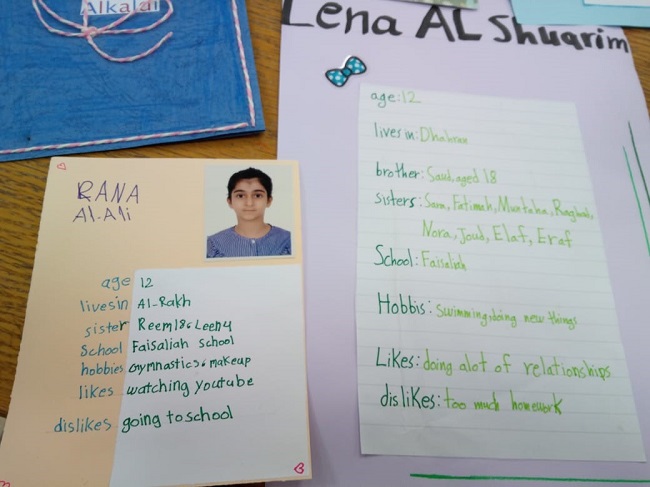 Alkalai
RANA
Al-Ali
age 12
lives in Al-Rakh
sister Reem 18 & Leen 4
School Faisaliah school
hobbies Gymnastics & makeup
likes watching youtube
dislikes going to school
Lena AL Shuarim
age: 12
lives in: Dhahran
brother: Saud, aged 18
sisters: Sara, Fatimah, Muntaha, Raghad,
Nora, Joud, Elaf, Eraf
School: Faisaliah
Hobbis: swimming, doing new things
Likes: doing alot of relationships
dislikes: too much homework